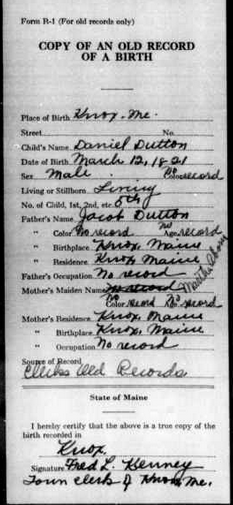 Form R-1 (For old records only)
COPY OF AN OLD RECORD
OF A BIRTH
Place of Birth Knox, Me.
Street No.
Child's Name Daniel Dutton
Date of Birth March 12, 1821
Sex Male Color No record
Living or Stillborn Living
No. of Child, 1st, 2nd, etc. 5th
Father's Name Jacob Dutton
" Color No record Age No record
" Birthplace Knox, Maine
" Residence Knox, Maine
Father's Occupation No record
Mother's Maiden Name No record Martha
" Color No record No record
Mother's Residence Knox, Maine
" Birthplace Knox, Maine
" Occupation No record
Source of Record
Clerks Old Records
State of Maine
I hereby certify that the above is a true copy of the
birth recorded in
Knox.
Signature Fred L. Kenney
Town clerk of Knox Me.